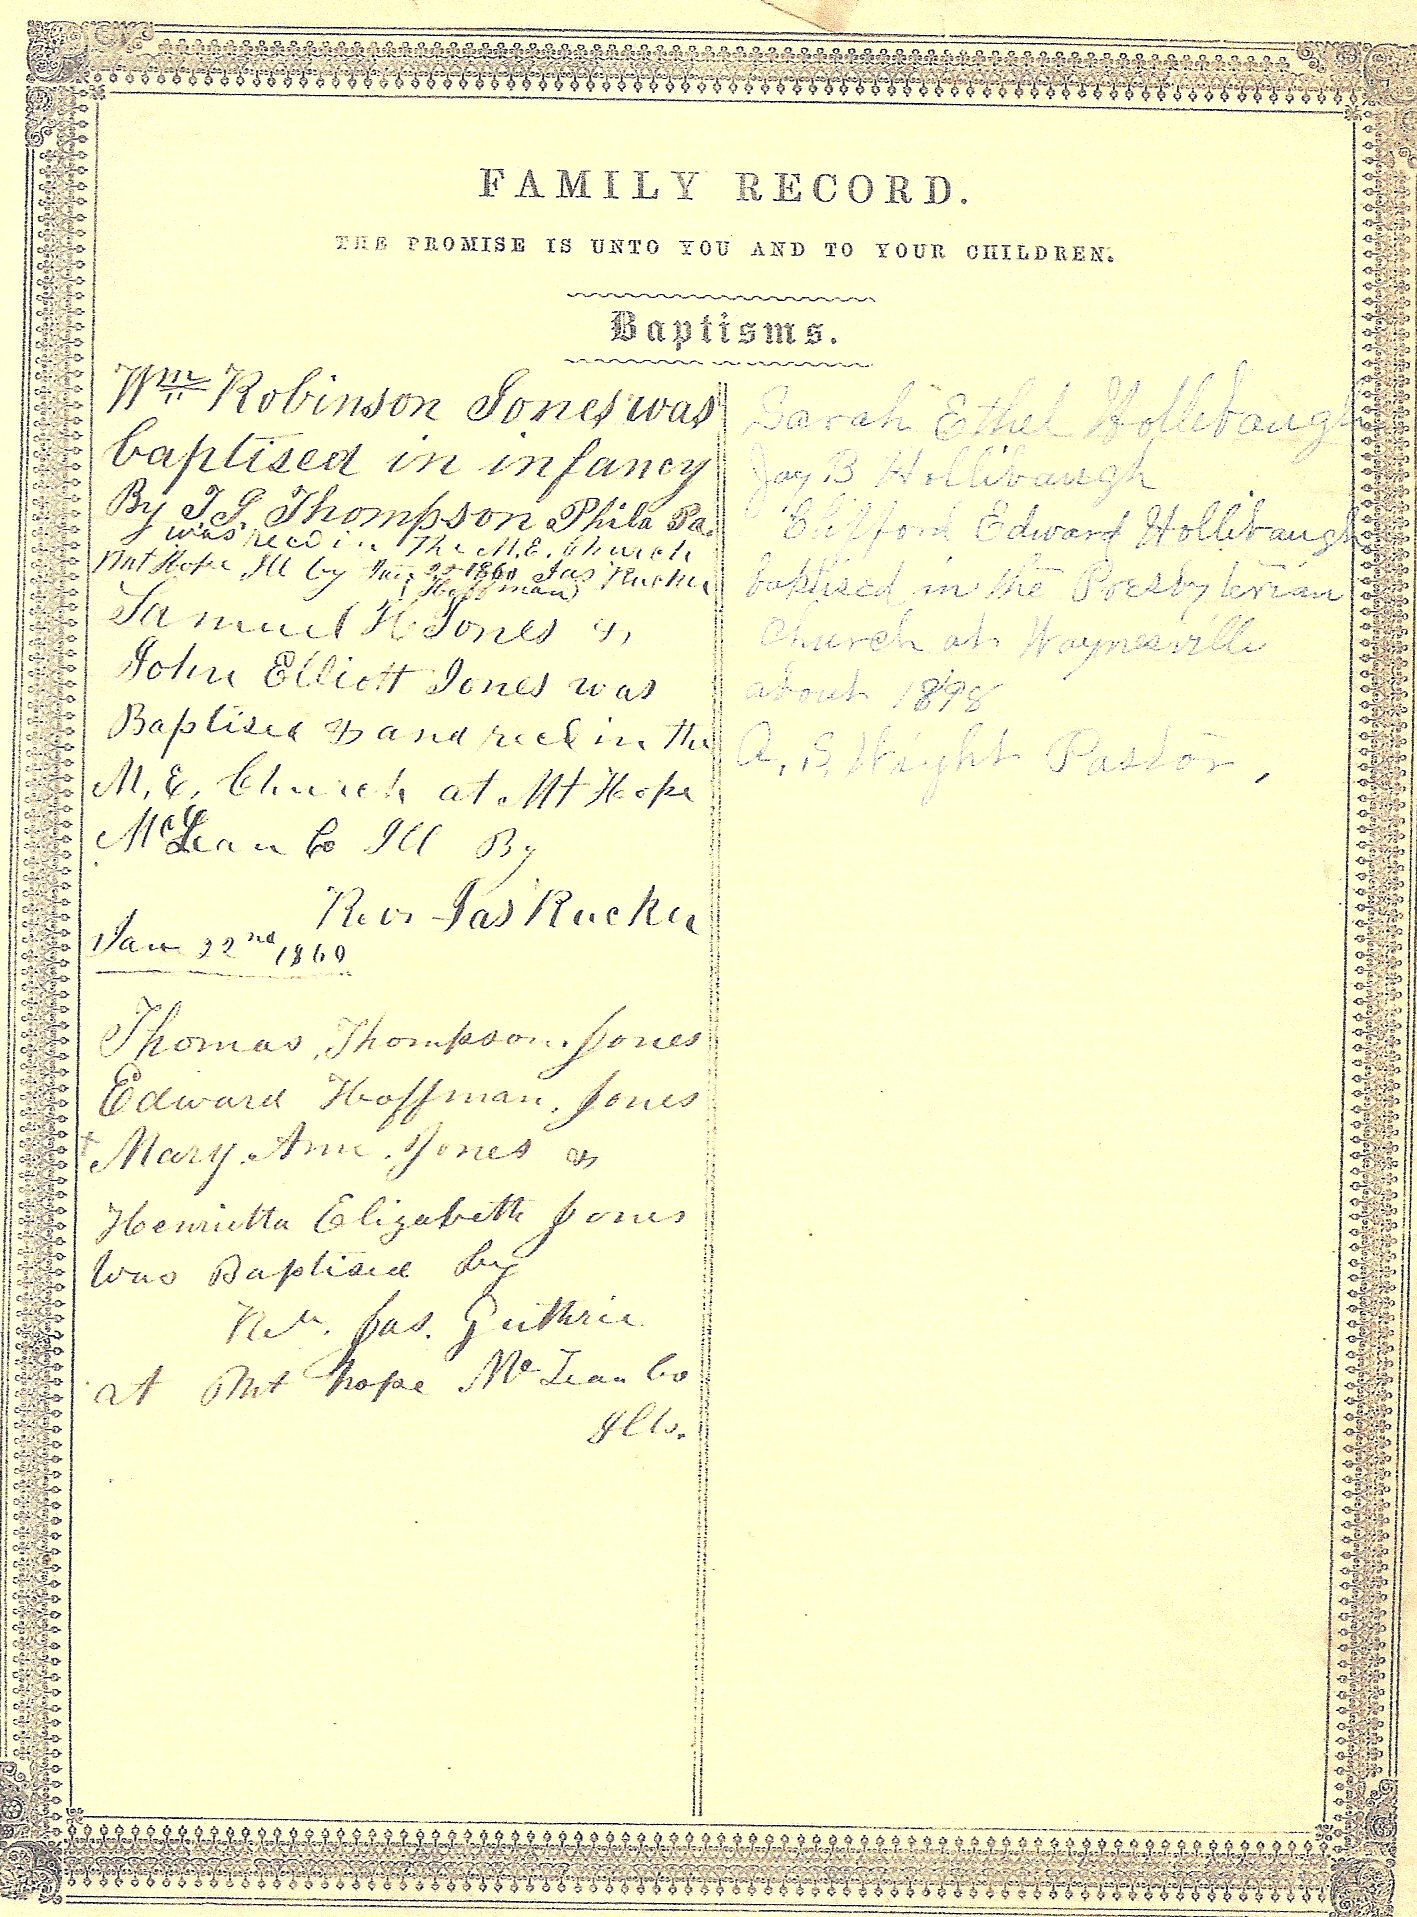 FAMILY RECORD.
THE PROMISE IS UNTO YOU AND TO YOUR CHILDREN.
Baptisms.
Wm Robinson Jones was
baptised in infancy
By T G Thompson Phila Pa.
was recd in The M.E. Church
Mt Hope Ill by Jan 22 1860 Jas Rucker
(Hoffman)
Samuel H Jones &
John Elliott Jones was
Baptised & and recd in the
M. E. Church at Mt Hope
McLean Co Ill By
Rev Jas Rucker
Jan 22nd 1860
Thomas Thompson Jones
Edward Hoffman Jones
Mary Ann Jones &
Henrietta Elizabeth Jones
was Baptised by
Rev. Jas. Guthrie
at Mt hope McLean Co
Ills.
Sarah Ethel Hollibaugh
Jay B Hollibaugh
Clifford Edward Hollibaugh
baptised in the Presbyterian
Church at Waynesville
about 1898
A. S. Wright Pastor,